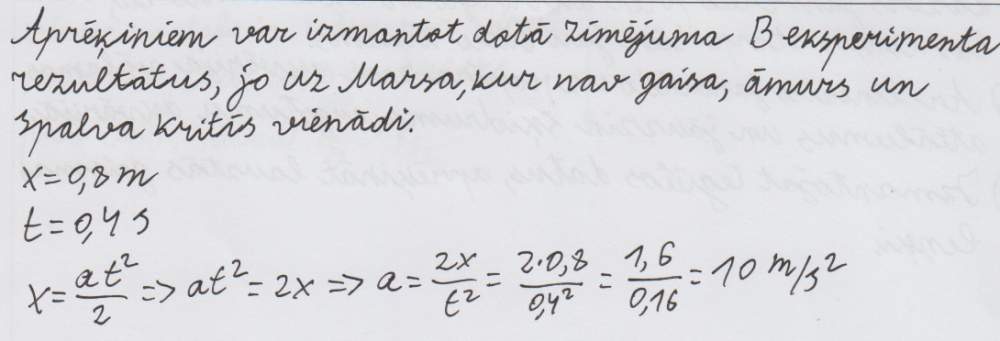 Aprēķiniem var izmantot dotā zīmējuma B eksperimenta
rezultātus, jo uz Marsa, kur nav gaisa, āmurs un
spalva kritīs vienādi.
x=0,8 m
t=0,4 s
x=at²/2 => at²=2x => a=2x/t²=2·0,8/0,4²=1,6/0,16=10 m/s²